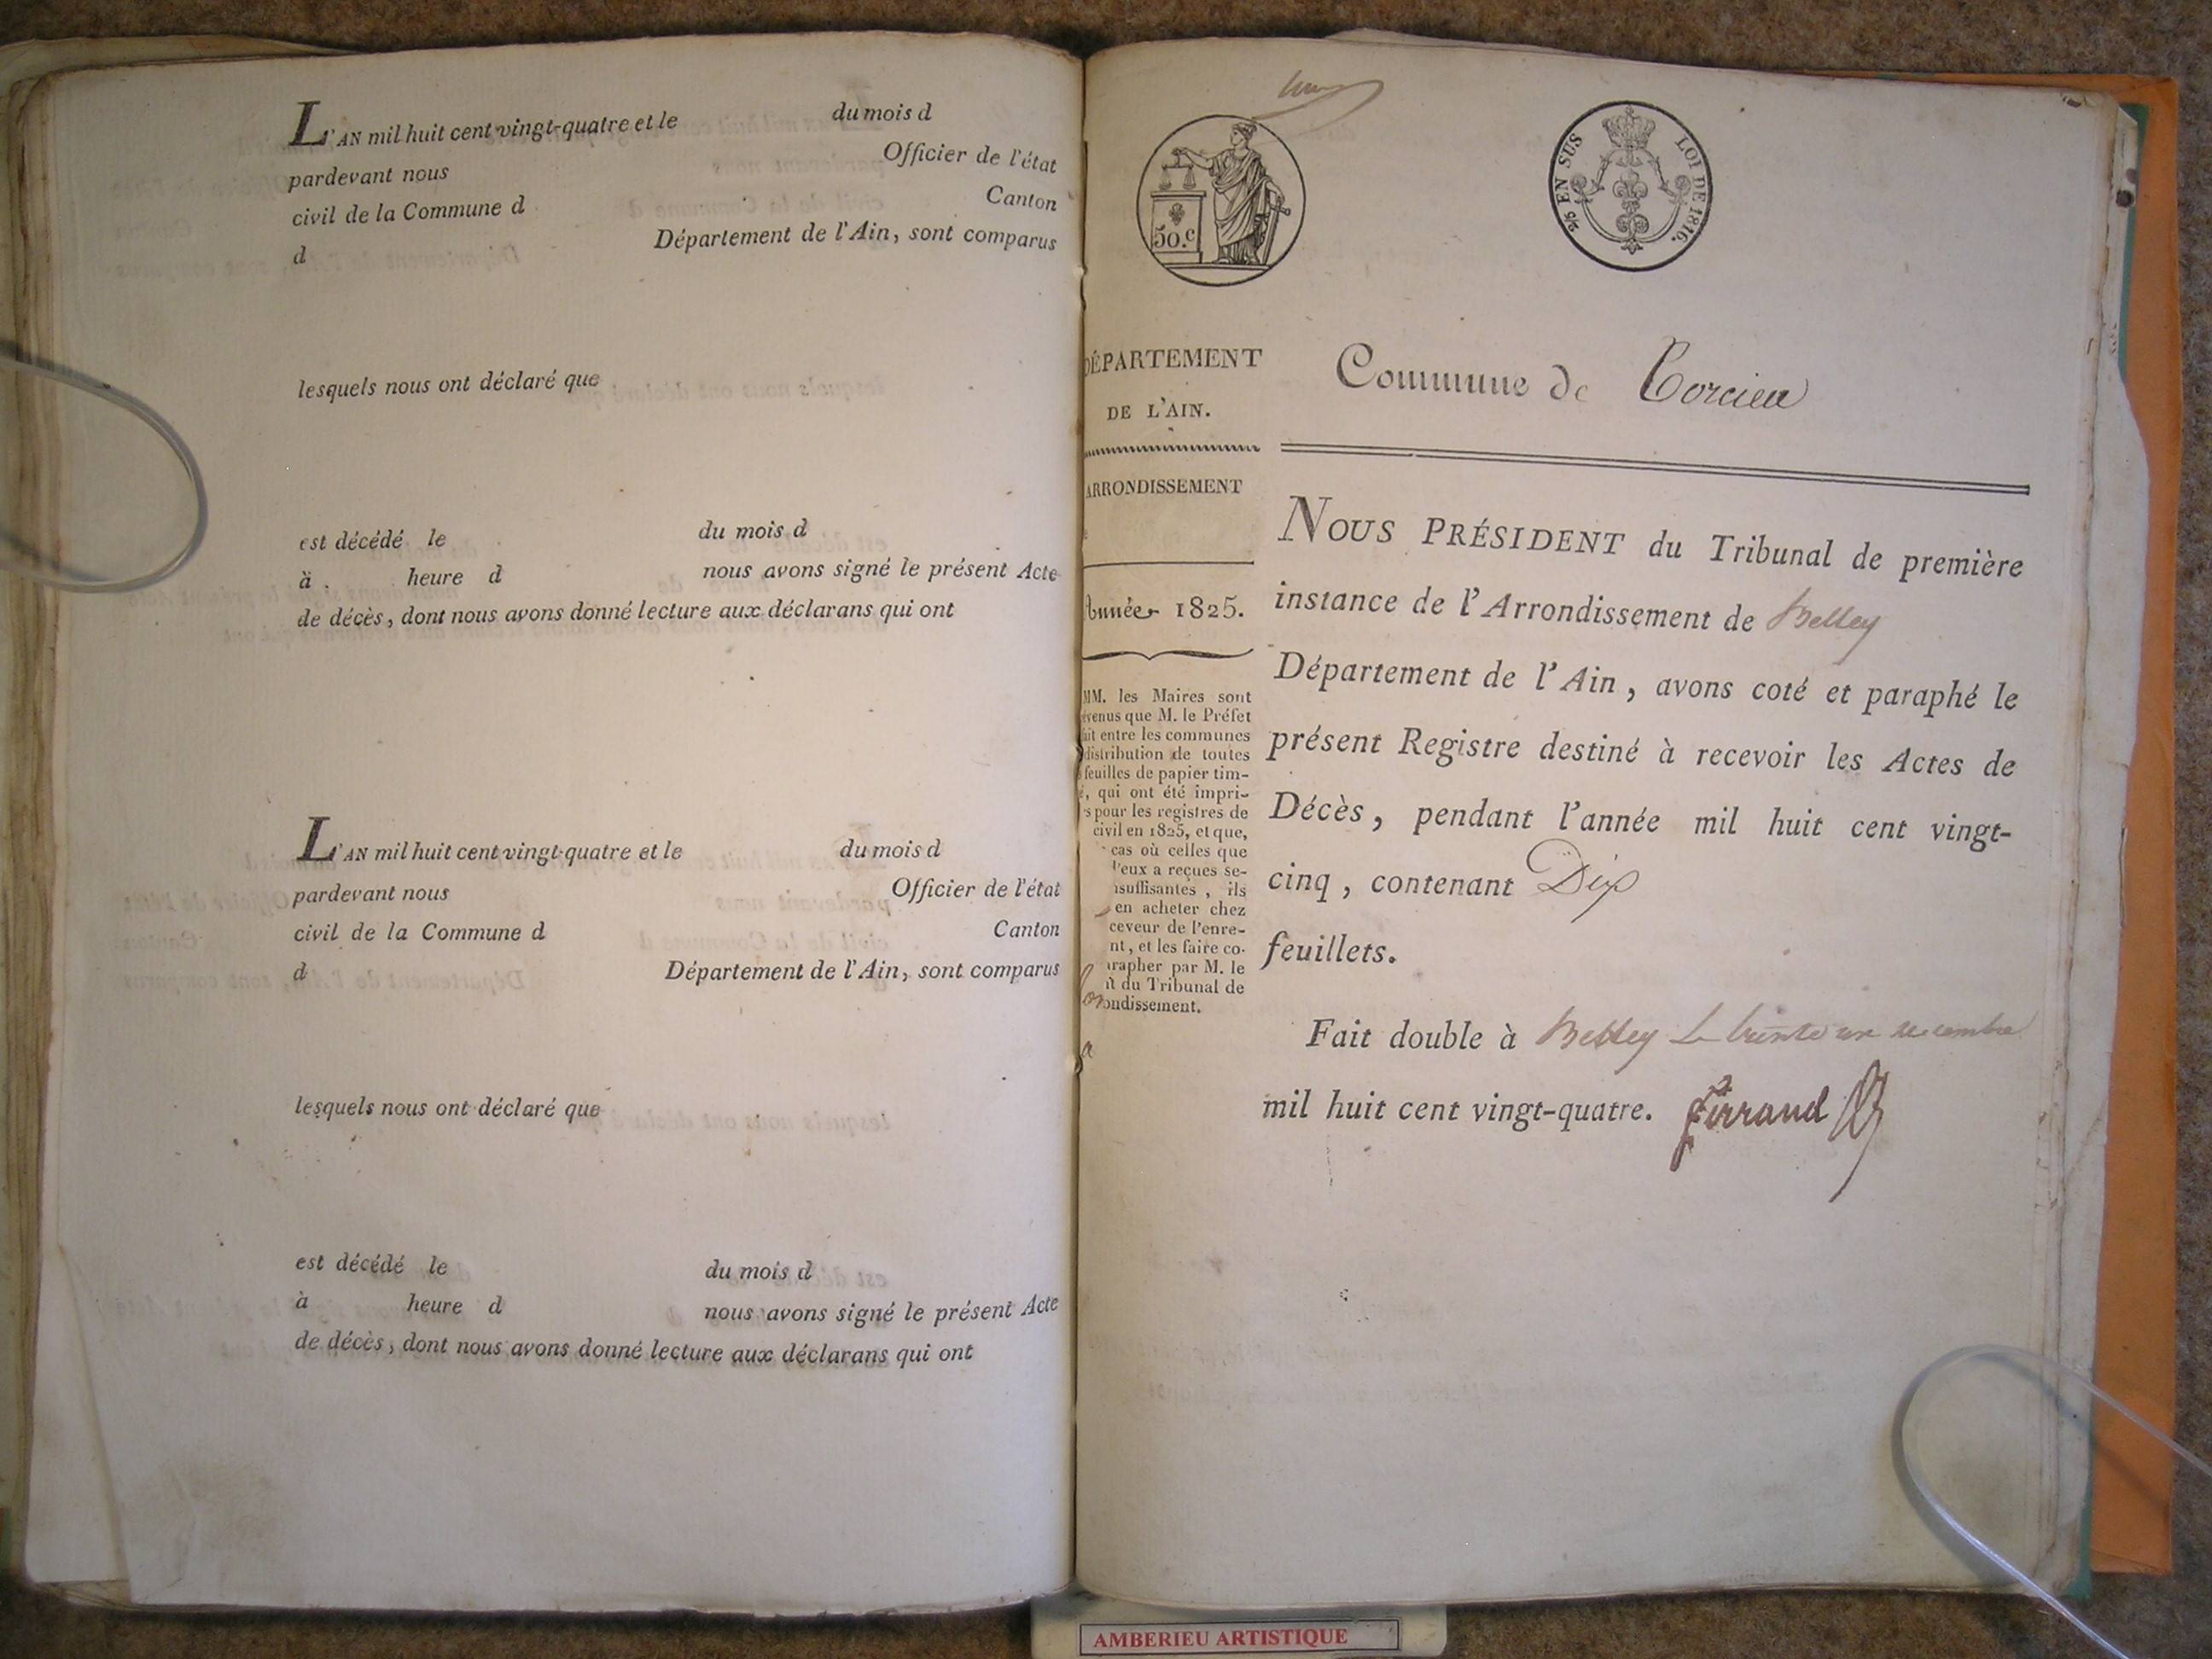 L'AN mil huit cent vingt-quatre et le du mois d
pardevant nous Officier de l'état
civil de la Commune d Canton
d Département de l'Ain, sont comparus
lesquels nous ont déclaré que
est décédé le du mois d
à heure d nous avons signé le présent Acte
de décès, dont nous avons donné lecture aux déclarans qui ont
L'AN mil huit cent vingt-quatre et le du mois d
pardevant nous Officier de l'état
civil de la Commune d Canton
d Département de l'Ain, sont comparus
lesquels nous ont déclaré que
est décédé le du mois d
à heure d nous avons signé le présent Acte
de décès, dont nous avons donné lecture aux déclarans qui ont
50.c
2/5 EN SUS LOI DE 1816.
DÉPARTEMENT
DE L'AIN.
ARRONDISSEMENT
Année 1825.
MM. les Maires sont
venus que M. le Préfet
ait entre les communes
distribution de toutes
feuilles de papier tim-
é, qui ont été impri-
s pour les registres de
civil en 1825, et que,
cas où celles que
d'eux a reçues se-
nsuffisantes, ils
en acheter chez
ceveur de l'enre-
nt, et les faire co-
rapher par M. le
t du Tribunal de
ondissement.
Commune de Torcieu
NOUS PRÉSIDENT du Tribunal de première
instance de l'Arrondissement de Belley
Département de l'Ain, avons coté et paraphé le
présent Registre destiné à recevoir les Actes de
Décès, pendant l'année mil huit cent vingt-
cinq, contenant Dix
feuillets.
Fait double à Belley le trente un décembre
mil huit cent vingt-quatre. Ferrand
AMBERIEU ARTISTIQUE